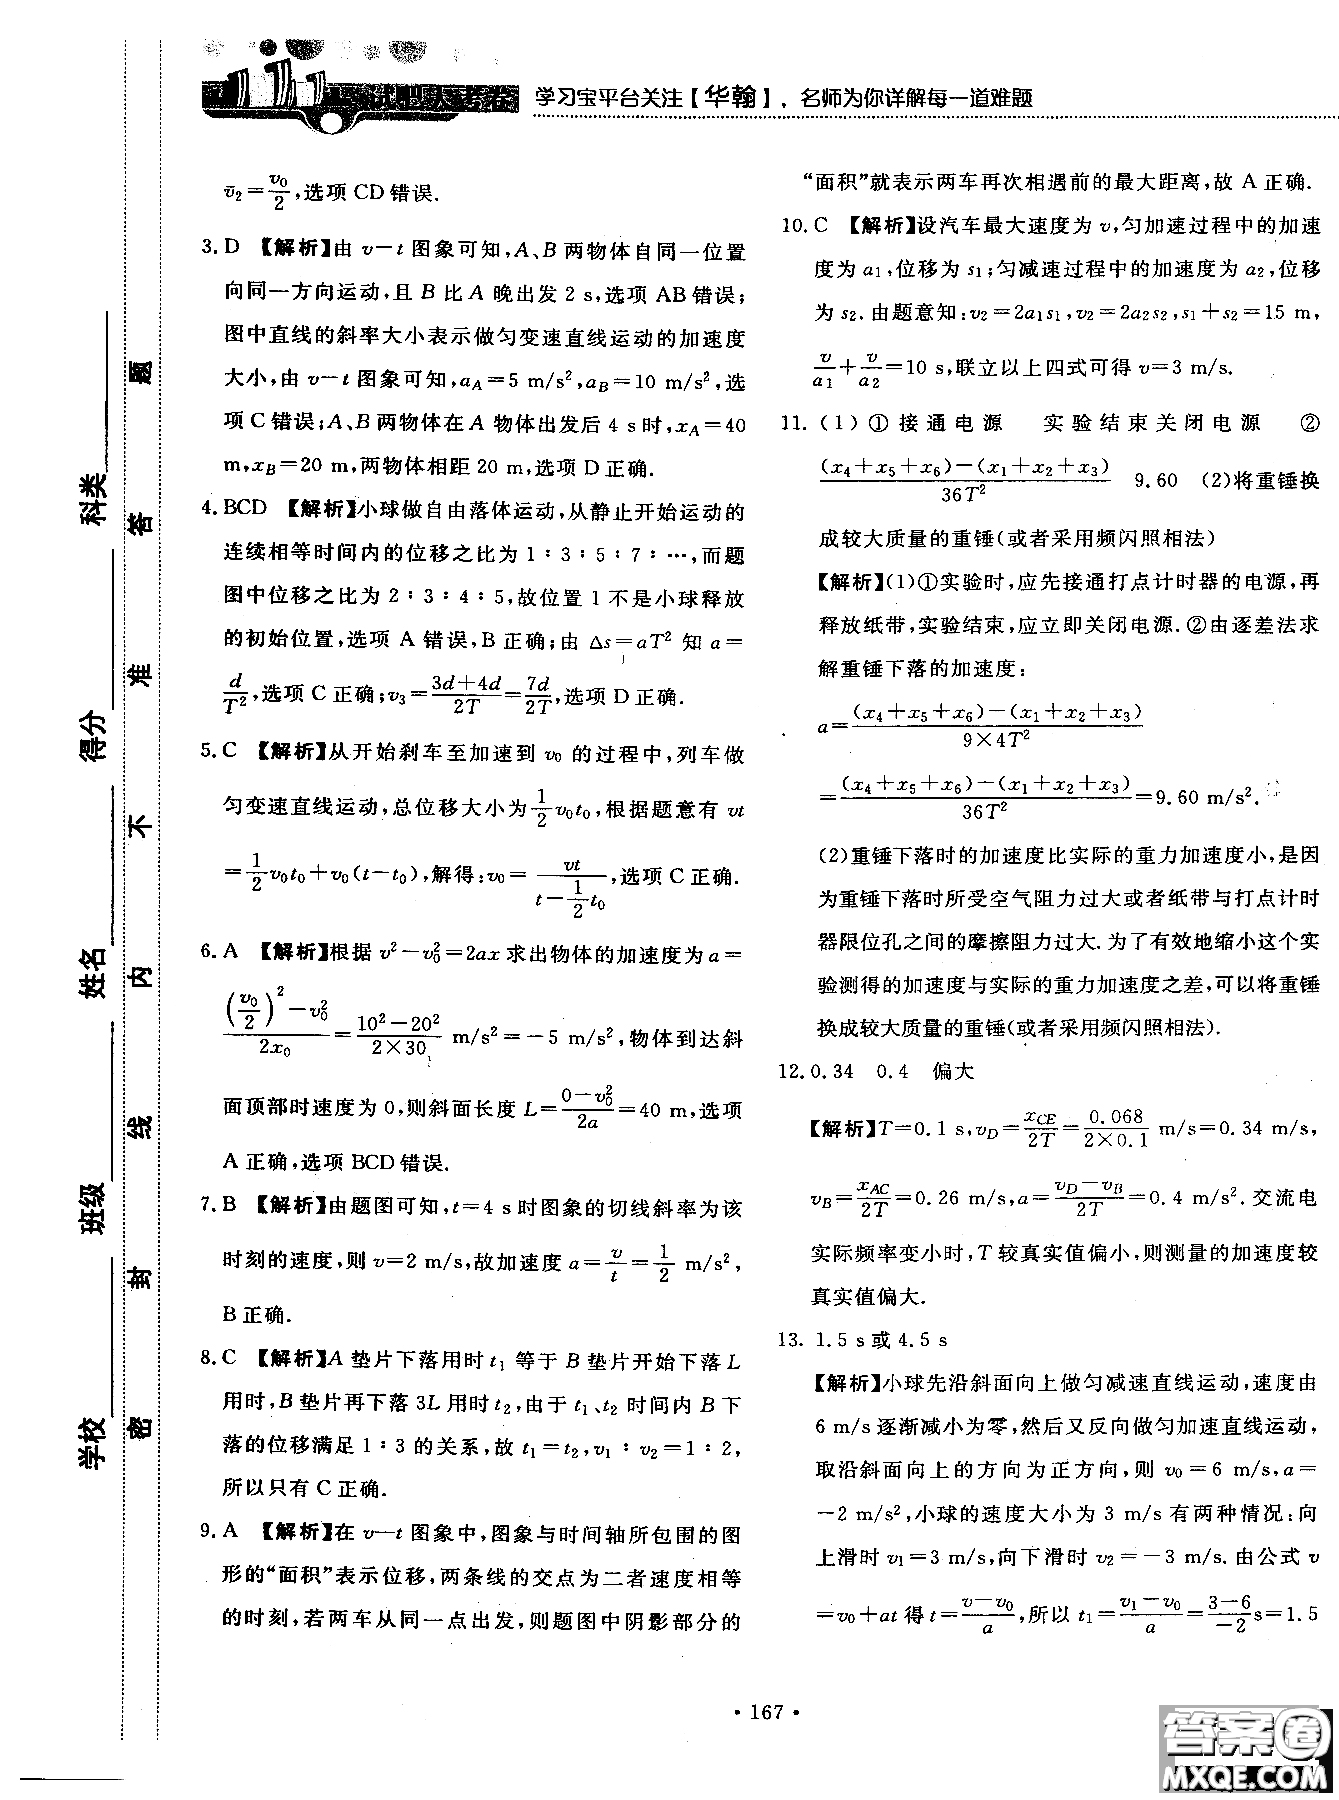 学习宝平台关注【华翰】，名师为你详解每一道难题
v̄₂=v₀/2,选项CD错误.
3. D 【解析】由 v—t 图象可知,A、B 两物体自同一位置
向同一方向运动,且 B 比 A 晚出发 2 s,选项 AB错误;
图中直线的斜率大小表示做匀变速直线运动的加速度
大小,由 v—t 图象可知,aA=5 m/s²,aB=10 m/s²,选
项C错误;A、B两物体在 A 物体出发后 4 s时,xA=40
m,xB=20 m,两物体相距20 m,选项D正确.
4. BCD 【解析】小球做自由落体运动,从静止开始运动的
连续相等时间内的位移之比为 1∶3∶5∶7∶…,而题
图中位移之比为 2∶3∶4∶5,故位置 1 不是小球释放
的初始位置,选项 A 错误,B 正确;由 Δs=aT² 知 a=
d/T²,选项C正确;v₃=(3d+4d)/2T=7d/2T,选项D正确.
5. C 【解析】从开始刹车至加速到 v₀ 的过程中,列车做
匀变速直线运动,总位移大小为½v₀t₀,根据题意有 vt
=½v₀t₀+v₀(t-t₀),解得:v₀=vt/(t-½t₀),选项C正确.
6. A 【解析】根据 v²-v₀²=2ax 求出物体的加速度为 a=
((v₀/2)²-v₀²)/2x₀=(10²-20²)/(2×30) m/s²=-5 m/s²,物体到达斜
面顶部时速度为 0,则斜面长度 L=(0-v₀²)/2a=40 m,选项
A正确,选项BCD错误.
7. B 【解析】由题图可知,t=4 s时图象的切线斜率为该
时刻的速度,则 v=2 m/s,故加速度 a=v/t=1/2 m/s²,
B正确.
8. C 【解析】A 垫片下落用时 t₁ 等于 B 垫片开始下落 L
用时,B 垫片再下落 3L 用时 t₂,由于 t₁、t₂ 时间内 B 下
落的位移满足 1∶3 的关系,故 t₁=t₂,v₁∶v₂=1∶2,
所以只有C正确.
9. A 【解析】在 v—t 图象中,图象与时间轴所包围的图
形的“面积”表示位移,两条线的交点为二者速度相等
的时刻,若两车从同一点出发,则题图中阴影部分的
“面积”就表示两车再次相遇前的最大距离,故 A 正确.
10. C 【解析】设汽车最大速度为 v,匀加速过程中的加速
度为 a₁,位移为 s₁;匀减速过程中的加速度为 a₂,位移
为 s₂.由题意知:v2=2a₁s₁,v2=2a₂s₂,s₁+s₂=15 m,
v/a₁+v/a₂=10 s,联立以上四式可得 v=3 m/s.
11. (1) ① 接通电源 实验结束关闭电源 ②
((x₄+x₅+x₆)-(x₁+x₂+x₃))/36T² 9.60 (2)将重锤换
成较大质量的重锤(或者采用频闪照相法)
【解析】(1)①实验时,应先接通打点计时器的电源,再
释放纸带,实验结束,应立即关闭电源.②由逐差法求
解重锤下落的加速度:
a=((x₄+x₅+x₆)-(x₁+x₂+x₃))/(9×4T²)
=((x₄+x₅+x₆)-(x₁+x₂+x₃))/36T²=9.60 m/s².
(2)重锤下落时的加速度比实际的重力加速度小,是因
为重锤下落时所受空气阻力过大或者纸带与打点计时
器限位孔之间的摩擦阻力过大.为了有效地缩小这个实
验测得的加速度与实际的重力加速度之差,可以将重锤
换成较大质量的重锤(或者采用频闪照相法).
12. 0.34 0.4 偏大
【解析】T=0.1 s,vD=xCE/2T=0.068/(2×0.1) m/s=0.34 m/s,
vB=xAC/2T=0.26 m/s,a=(vD-vB)/2T=0.4 m/s².交流电
实际频率变小时,T 较真实值偏小,则测量的加速度较
真实值偏大.
13. 1.5 s或4.5 s
【解析】小球先沿斜面向上做匀减速直线运动,速度由
6 m/s逐渐减小为零,然后又反向做匀加速直线运动,
取沿斜面向上的方向为正方向,则 v₀=6 m/s,a=
-2 m/s²,小球的速度大小为 3 m/s有两种情况:向
上滑时 v₁=3 m/s,向下滑时 v₂=-3 m/s.由公式 v
=v₀+at 得 t=(v-v₀)/a,所以 t₁=(v₁-v₀)/a=(3-6)/-2 s=1.5
· 167 ·
学校 班级 姓名 得分 科类
密 封 线 内 不 准 答 题
答案圈
MXQE.COM